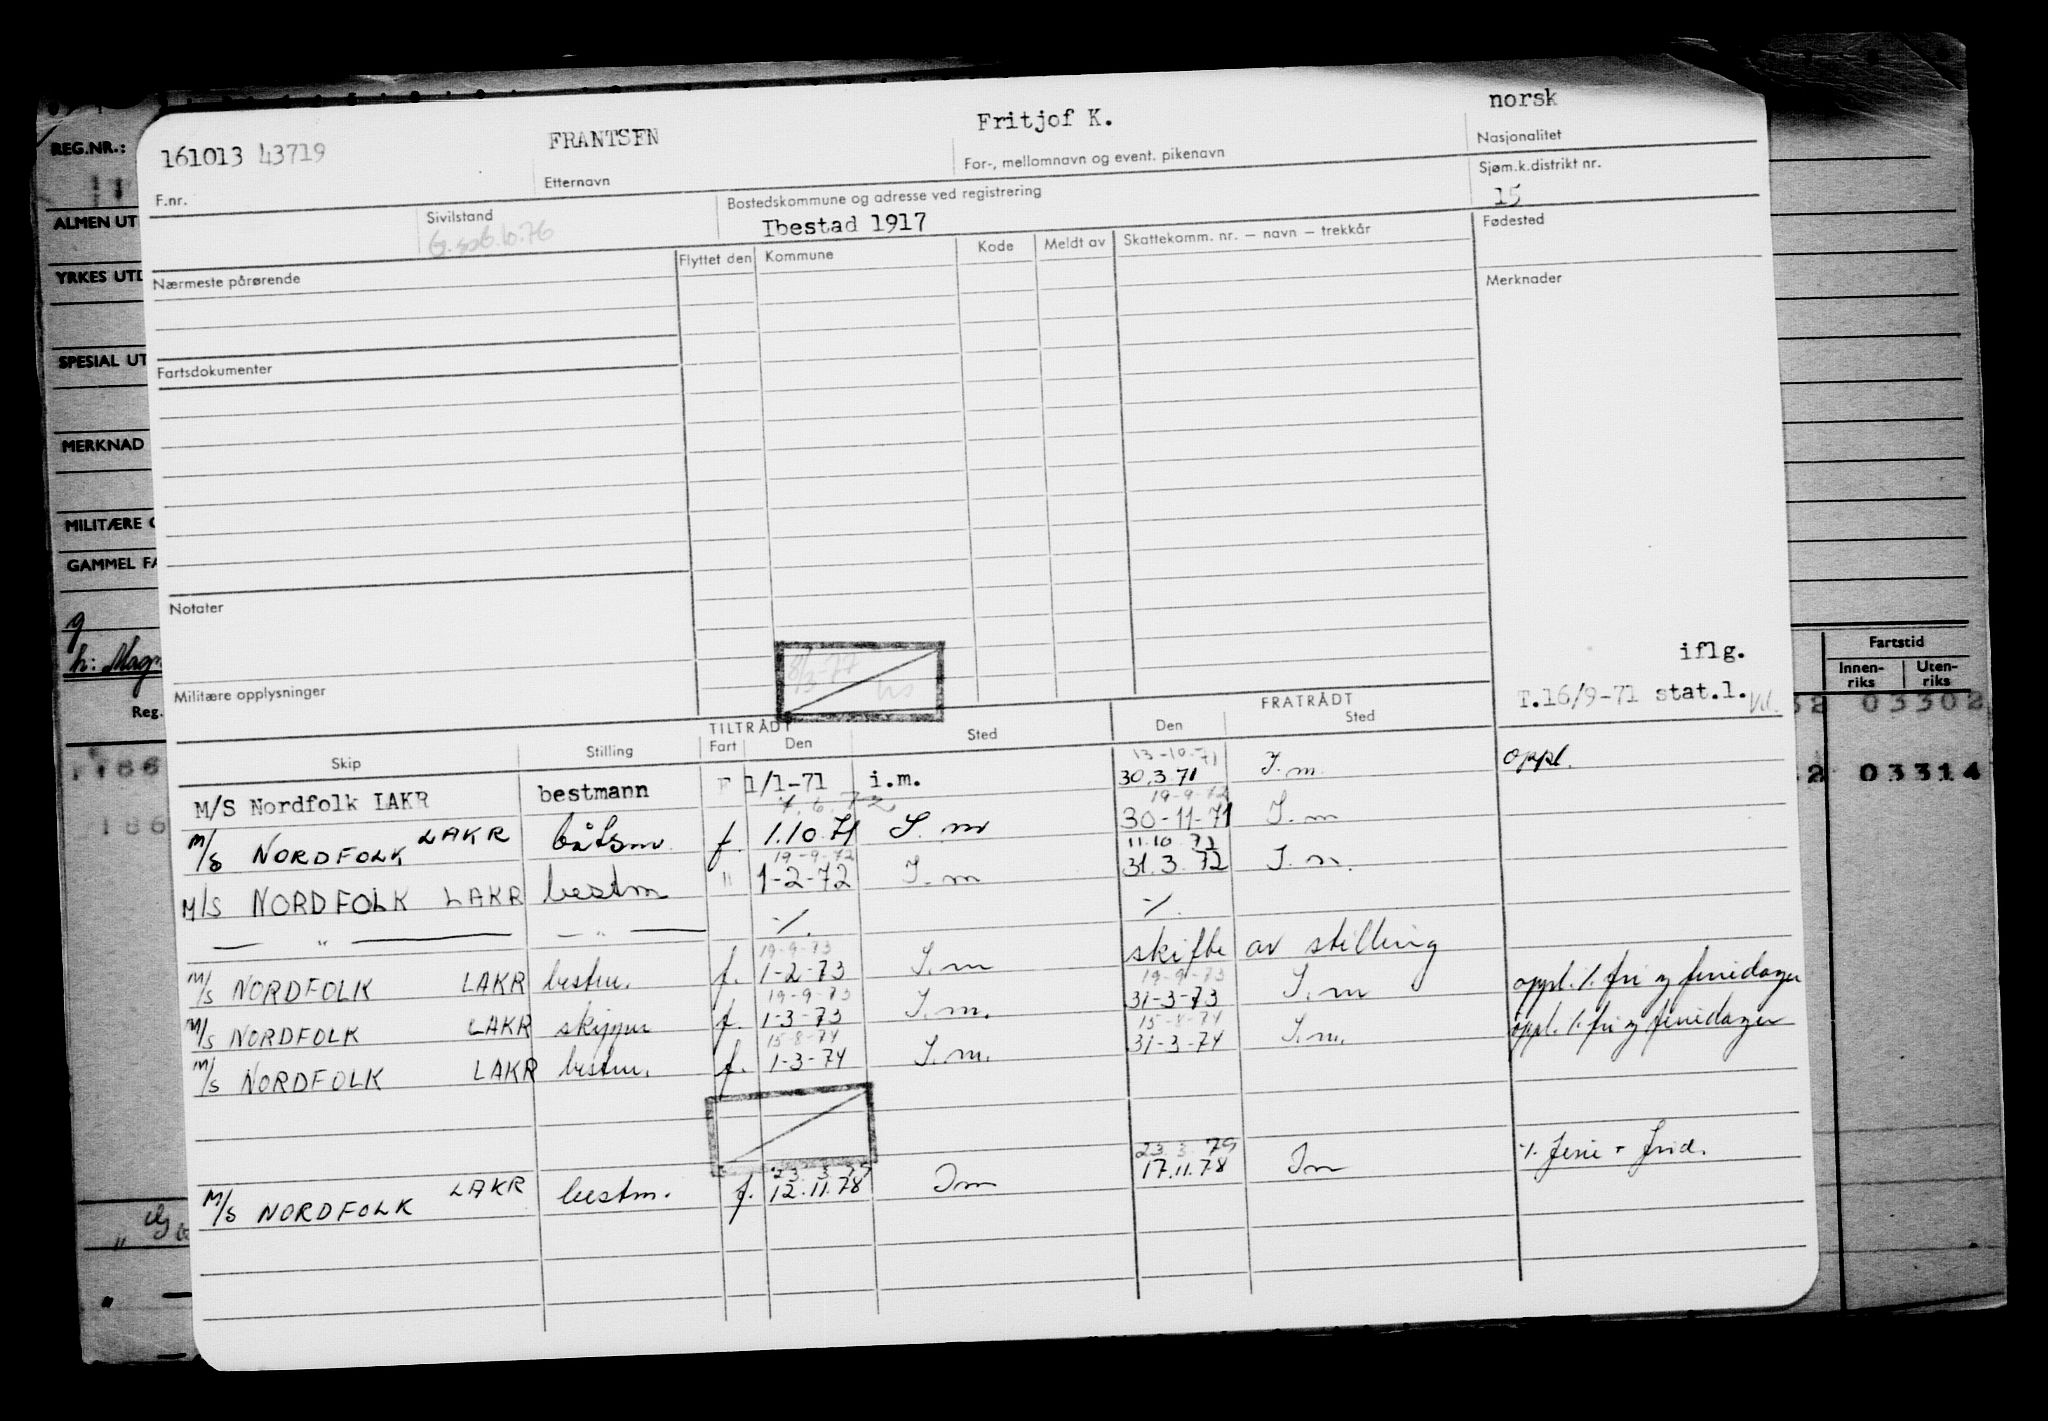 REG.NR.:
ALMEN UT
YRKES UTD
SPESIAL UT
MERKNAD
MILITÆRE O
GAMMEL FA
g
h: Magn
Reg.
161013 43719
F.nr.
FRANTSEN
Etternavn
Fritjof K.
For-, mellomnavn og event. pikenavn
norsk
Nasjonalitet
Sivilstand
Bostedskommune og adresse ved registrering
Ibestad 1917
Sjøm.k.distrikt nr.
15
Fødested
Nærmeste pårørende
Flyttet den
Kommune
Kode
Meldt av
Skattekomm. nr. — navn — trekkår
Merknader
Fartsdokumenter
Notater
8/3-77
Militære opplysninger
iflg.
T.16/9-71 stat.l.
Fartstid
Innen-riks
Uten-riks
03302
03314
TILTRÅDT
FRATRÅDT
Skip
Stilling
Fart
Den
Sted
Den
Sted
13-10-71
M/S Nordfolk LAKR bestmann F 1/1-71 i.m. 30.3.71 I.m. oppl.
7.6.72 19-9-72
M/S NORDFOLK LAKR båtsm. f. 1.10.71 I.m 30-11-71 I.m
19-9-72 11.10.72
M/S NORDFOLK LAKR bestm " 1-2-72 I.m 31.3.72 I.m.
— " — — " — ·/. ·/.
19-9-73 skifte av stilling
M/S NORDFOLK LAKR bestm. f. 1-2-73 I.m
19-9-73 19-9-73
M/S NORDFOLK LAKR skipper f. 1-3-73 I.m. 31-3-73 I.m oppl. ·/. fri og feriedager
15-8-74 15-8-74
M/S NORDFOLK LAKR bestm. f. 1-3-74 I.m. 31-3-74 I.m. oppl. ·/. fri og feriedager
23.3.79 23.3.79
M/S NORDFOLK LAKR bestm. f. 12.11.78 Im 17.11.78 Im ·/. ferie + frid.